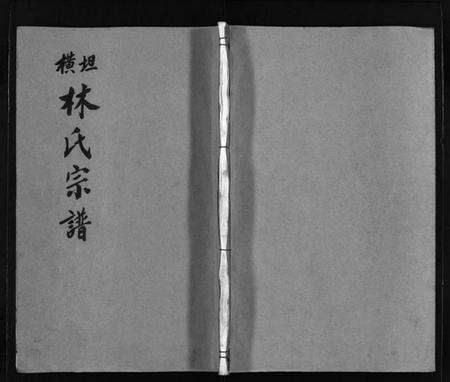 坦横
林氏宗譜